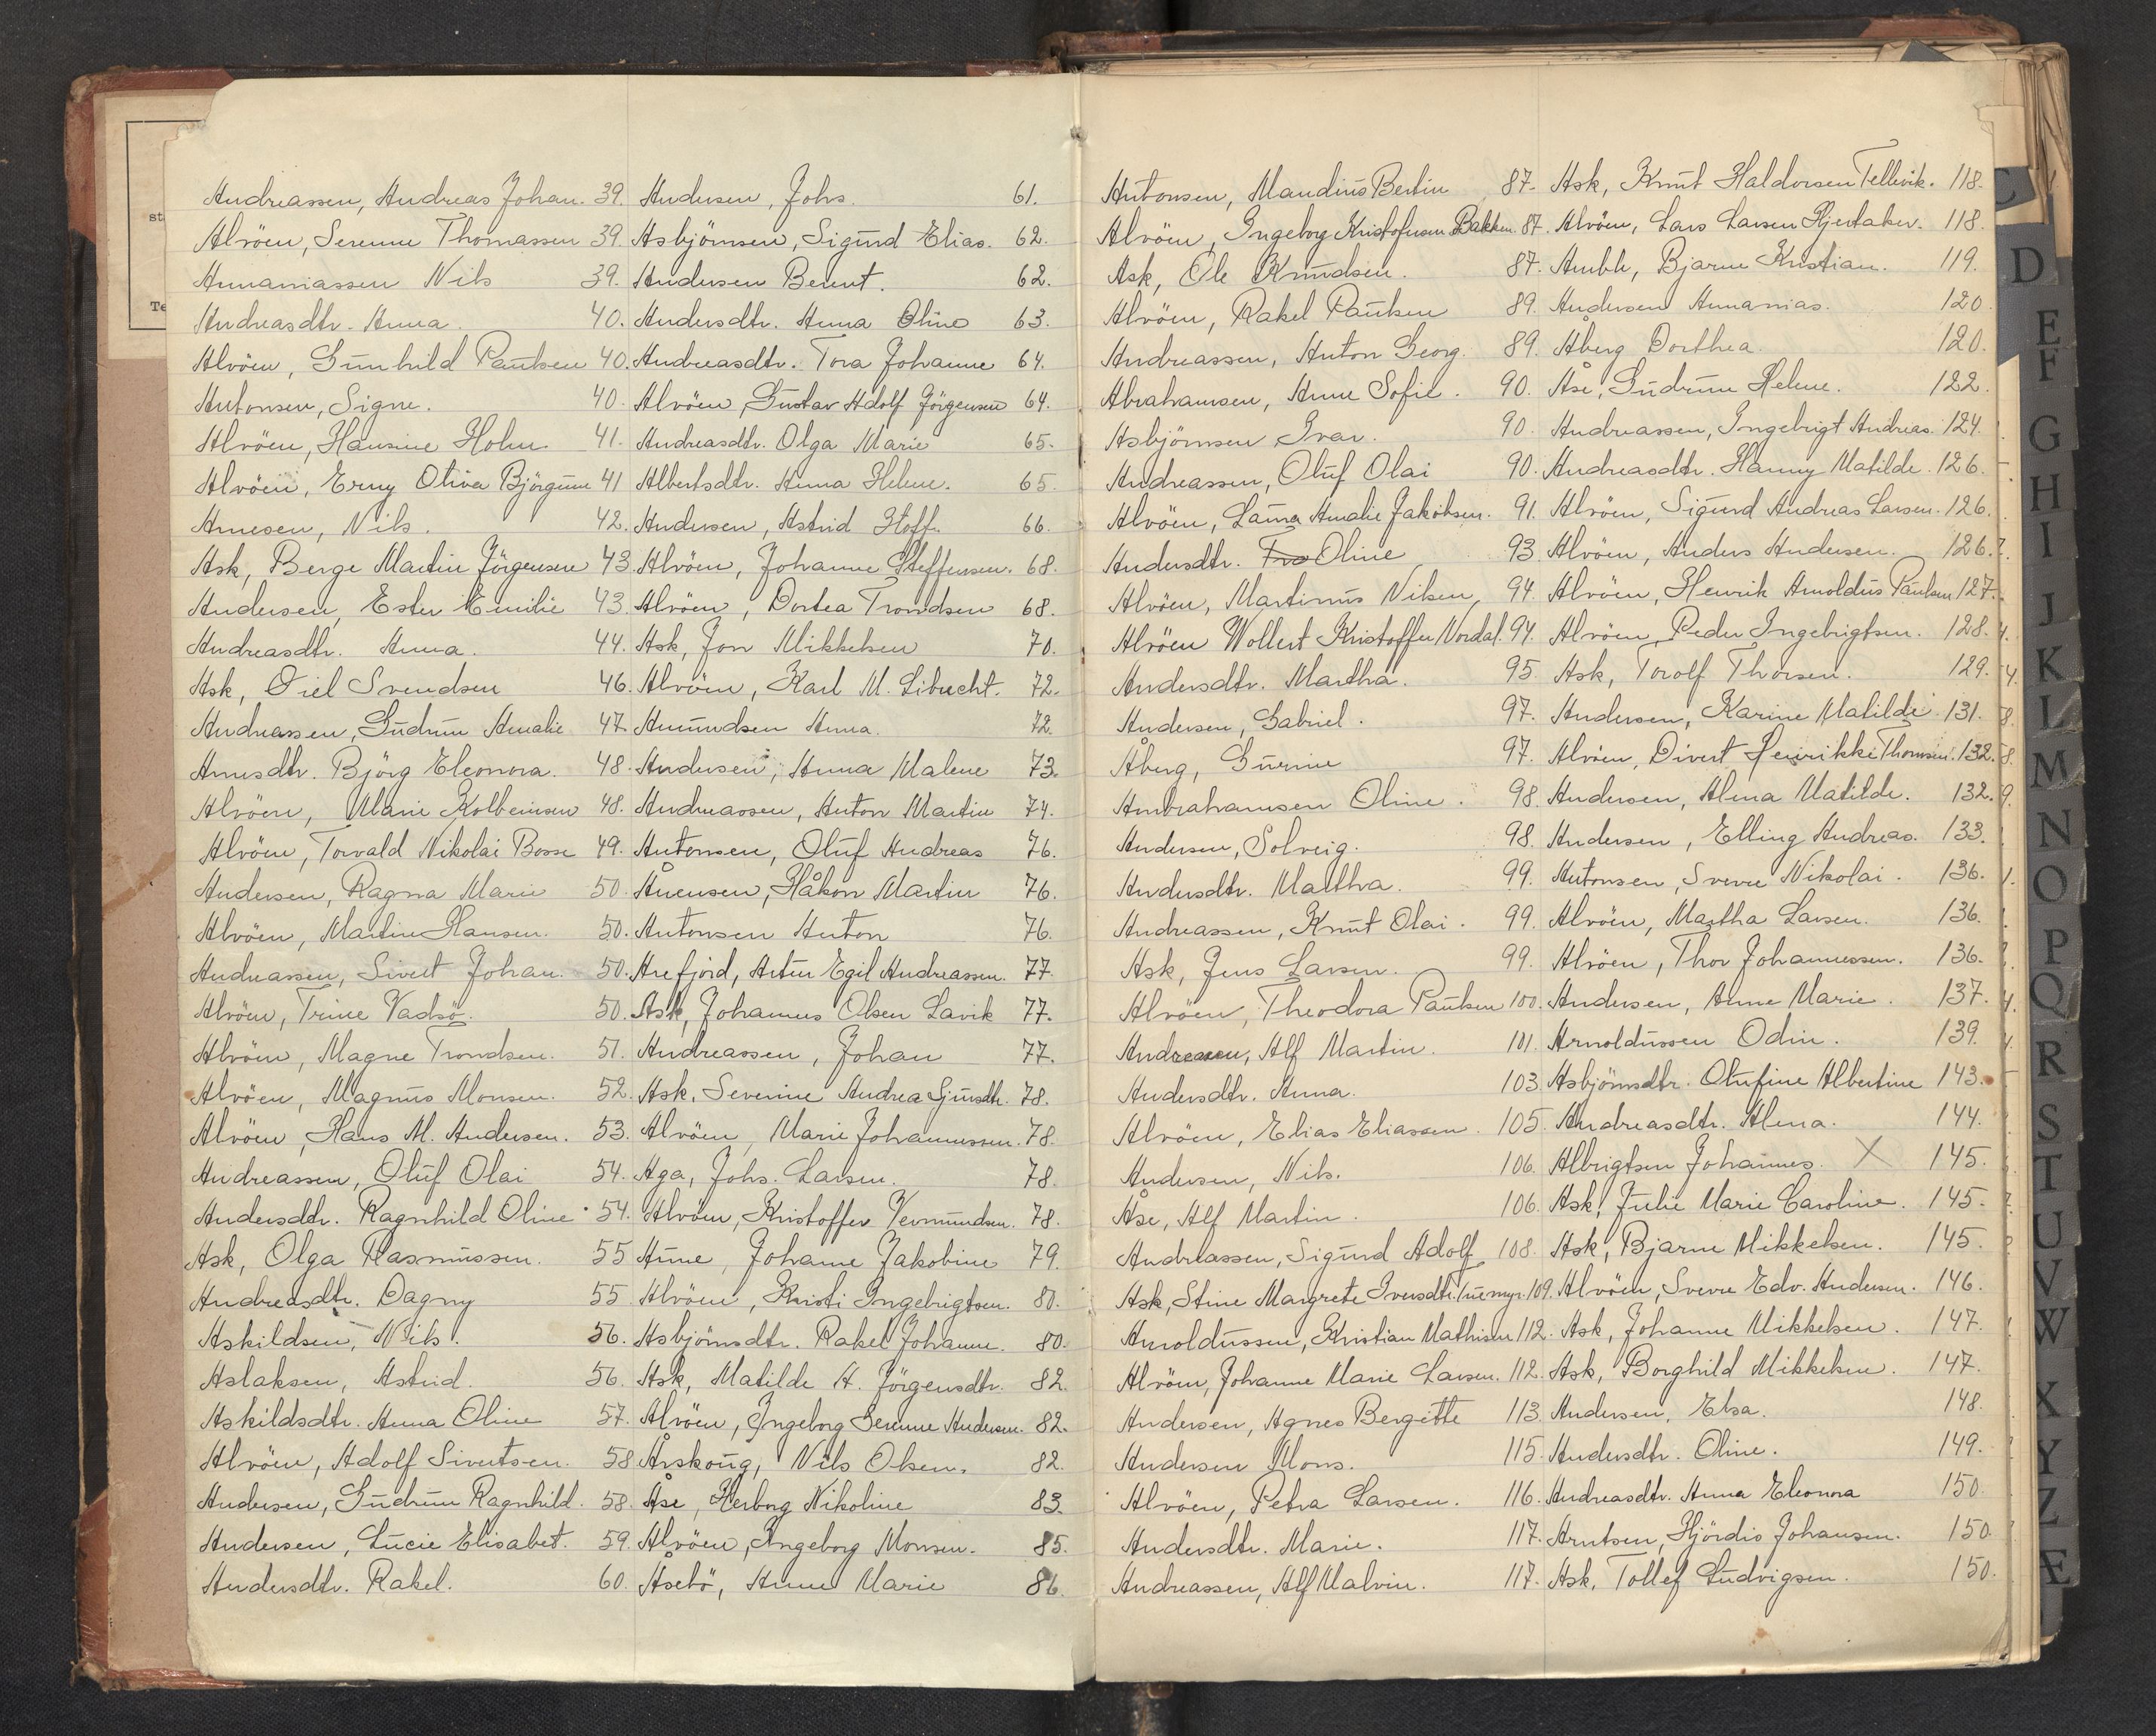 Andreassen, Andreas Johan. 39.
Alvöen, Serenne Thomassen 39.
Annaniassen Nils 39.
Andreasdtr. Anna. 40.
Alvöen, Gunhild Paulsen 40.
Antonsen, Signe. 40.
Alvöen, Hansine Holm. 41.
Alvöen, Erny Oliva Björgum 41
Arnesen, Nils. 42.
Ask, Berge Martin Jörgensen 43.
Andersen, Ester Emilie 43.
Andreasdtr. Anna. 44.
Ask, Eiel Svendsen 46.
Andreassen, Gudrun Amalie 47.
Arnesdtr. Björg Eleonora. 48.
Alvöen, Marie Kolbeinsen 48.
Alvöen, Torvald Nikolai Bosse 49.
Andersen, Ragna Marie 50.
Alvöen, Martin Hansen. 50.
Andreassen, Sivert Johan. 50.
Alvöen, Trine Vadsö. 50.
Alvöen, Magne Trondsen. 51.
Alvöen, Magnus Monsen. 52.
Alvöen, Hans M. Andersen. 53.
Andreassen, Oluf Olai 54.
Andersdtr. Ragnhild Oline 54.
Ask, Olga Rasmussen. 55
Andreasdtr. Dagny 55
Askildsen, Nils. 56.
Aslaksen, Astrid. 56.
Askildsdtr. Anna Oline 57.
Alvöen, Adolf Sivertsen. 58
Andersen, Gudrun Ragnhild. 58.
Andersen, Lucie Elisabet. 59.
Andersdtr. Rakel. 60.
Andersen, Johs. 61.
Asbjörnsen, Sigurd Elias. 62.
Andersen Berent. 62.
Andersdtr. Anna Oline 63.
Andreasdtr. Tora Johanne 64.
Alvöen, Gustav Adolf Jörgensen 64.
Andreasdtr. Olga Marie 65.
Albertsdtr. Anna Helene. 65.
Andersen, Astrid Hoff. 66.
Alvöen, Johanne Steffensen. 68.
Alvöen, Dortea Trondsen 68.
Ask, Jon Mikkelsen 70.
Alvöen, Karl M. Librecht. 72.
Amundsen Anna. 72.
Andersen, Anna Malene 73.
Andreassen, Anton Martin 74.
Antonsen, Oluf Andreas 76.
Ånensen, Håkon Martin 76.
Antonsen Anton 76.
Arefjord, Artur Egil Andreassen. 77.
Ask, Johannes Olsen Lavik 77.
Andreassen, Johan 77.
Ask, Severine Andrea Gjursdtr. 78.
Alvöen, Marie Johannessen. 78.
Aga, Johs. Larsen. 78.
Alvöen, Kristoffer Vermundsen. 78.
Anne, Johanne Jakobine 79.
Alvöen, Kristi Ingebrigtsen. 80.
Asbjörnsdtr. Rakel Johanne. 80.
Ask, Matilde H. Jörgensdtr. 82.
Alvöen, Ingeborg Serenne Andersen. 82.
Årskoug, Nils Olsen. 82.
Åse, Herborg Nikoline 83.
Alvöen, Ingeborg Monsen. 85.
Åsebö, Anne Marie 86.
Antonsen, Mandius Bertin 87.
Alvöen, Ingeborg Kristofersen Bakken. 87.
Ask, Ole Knudsen. 87.
Alvöen, Rakel Paulsen 89.
Andreassen, Anton Georg. 89.
Abrahamsen, Anne Sofie. 90.
Asbjörnsen Ivar. 90.
Andreassen, Oluf Olai 90.
Alvöen, Laura Amalie Jakobsen. 91.
Andersdtr. Oline 93.
Alvöen, Martinus Nilsen, 94.
Alvöen Wollert Kristoffer Nordal. 94.
Andersdtr. Martha. 95.
Andersen, Gabriel. 97.
Åberg, Gurine 97.
Ambrahamsen Oline. 98.
Andersen, Solveig. 98.
Andersdtr. Martha. 99.
Andreassen, Knut Olai. 99.
Ask, Jens Larsen. 99.
Alvöen, Theodora Paulsen 100.
Andreassen, Alf Martin. 101.
Andersdtr. Anna. 103.
Alvöen, Elias Eliassen. 105.
Andersen, Nils. 106.
Åse, Alf Martin. 106.
Andreassen, Sigurd Adolf 108.
Ask, Stine Margrete Iversdtr. Tuemyr. 109.
Arnoldussen, Kristian Mathisen 112.
Alvöen, Johanne Marie Larsen. 112.
Andersen, Agnes Bergitte 113.
Andersen Mons. 115.
Alvöen, Petra Larsen. 116.
Andersdtr. Marie. 117.
Andreassen, Alf Malvin. 117.
Ask, Knut Haldorsen Tellevik. 118.
Alvöen, Lars Larsen Hjertaker. 118.
Amble, Bjarne Kristian. 119.
Andersen Annanias. 120.
Åberg Dorthea. 120.
Åse, Gudrun Helene. 122.
Andreassen, Ingebrigt Andreas. 124.
Andreasdtr. Hanny Matilde. 126.
Alvöen, Sigurd Andreas Larsen. 126.
Alvöen, Anders Andersen. 126.
Alvöen, Henrik Arnoldus Paulsen 127.
Alvöen, Peder Ingebrigtsen. 128.
Ask, Torolf Thorsen. 129.
Andersen, Karine Matilde 131.
Alvöen, Divert Henrikke Thomsen. 132.
Andersen, Alena Matilde. 132.
Andersen, Elling Andreas. 133.
Antonsen, Sverre Nikolai. 136.
Alvöen, Martha Larsen. 136.
Alvöen, Thor Johannessen. 136.
Andersen, Anne Marie. 137.
Arnoldussen Odin. 139.
Asbjörnsdtr. Olufine Albertine 143.
Andreasdtr. Alena. 144.
Albrigtsen Johannes. X 145.
Ask, Julie Marie Caroline. 145.
Ask, Bjarne Mikkelsen. 145.
Alvöen, Sverre Edv. Andersen. 146.
Ask, Johanne Mikkelsen. 147.
Ask, Borghild Mikkelsen. 147.
Andersen, Elsa. 148.
Andersdtr. Oline. 149.
Andreasdtr. Anna Eleonora 150.
Arntsen, Hjördis Johansen. 150.
Ask, Tollef Ludvigsen. 150.
C
D
E
F
G
H
I
J
K
L
M
N
O
P
Q
R
S
T
U
V
W
X
Y
Z
Æ